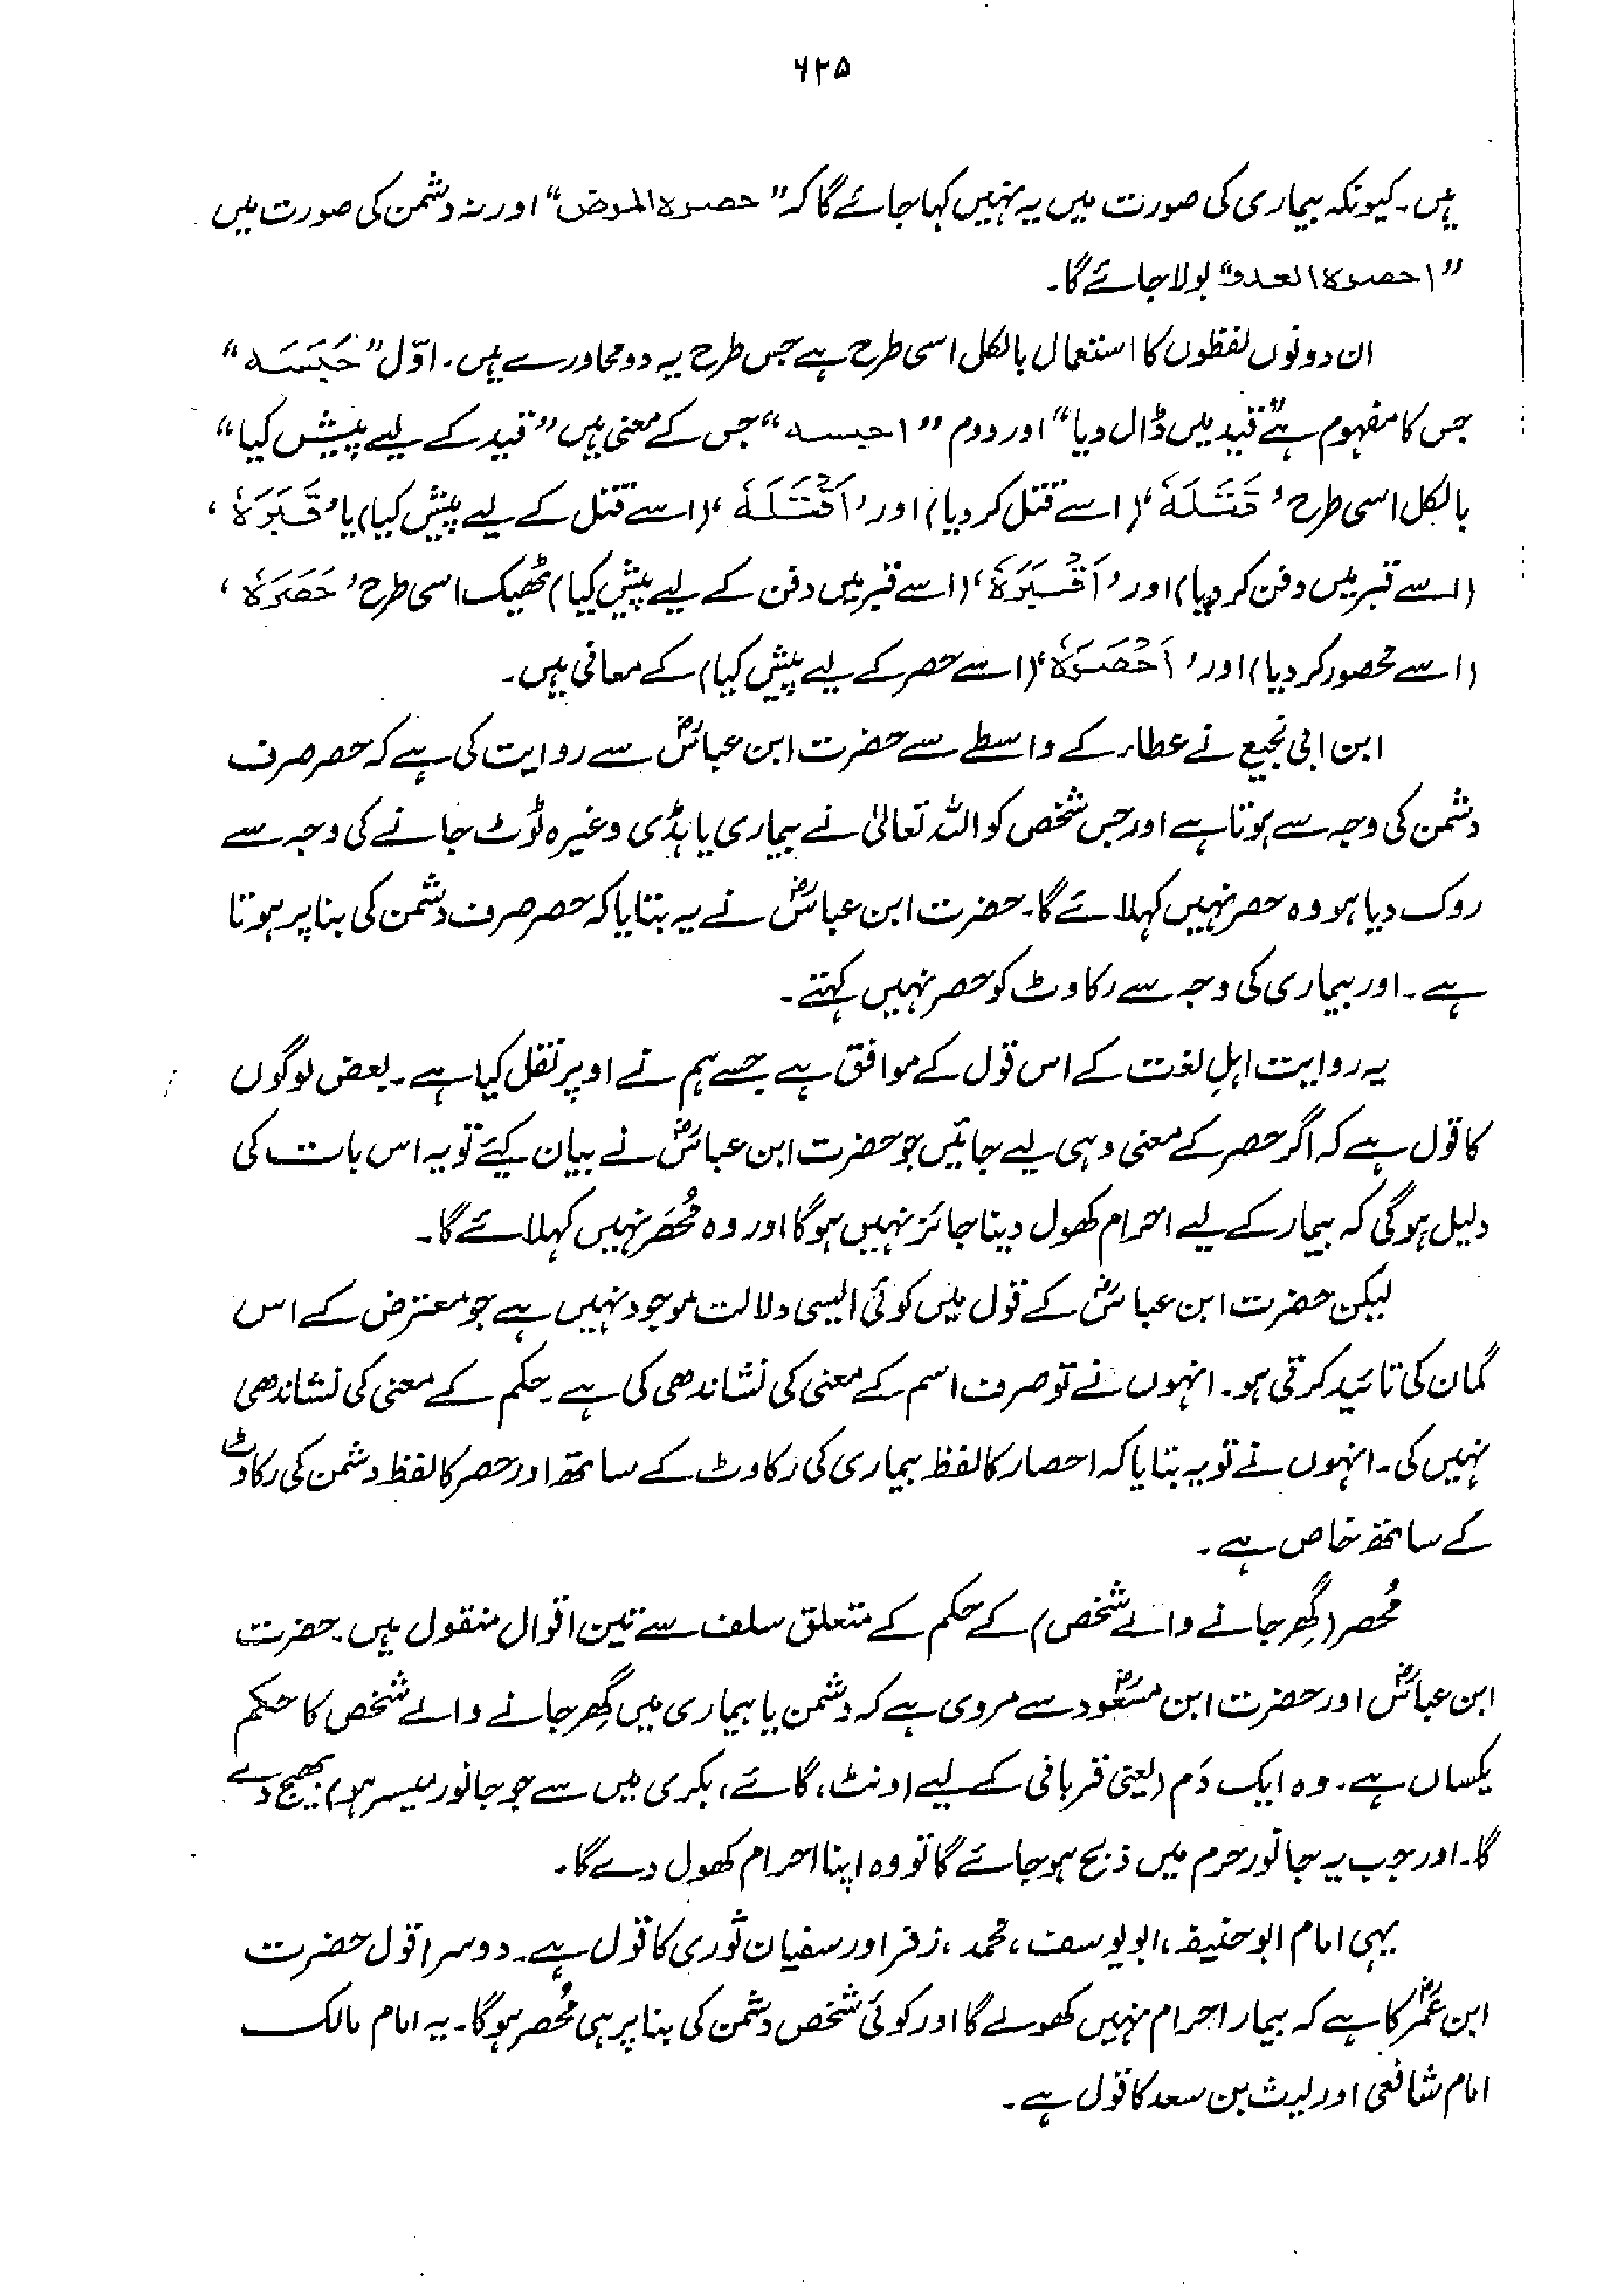 ۶۲۵
ہیں۔ کیونکہ بیماری کی صورت میں یہ نہیں کہا جائے گا کہ "حصرہ المرض" اور نہ دشمن کی صورت میں
"احصرہ العدو" بولا جائے گا۔
ان دونوں لفظوں کا استعمال بالکل اسی طرح ہے جس طرح یہ دو محاورے ہیں۔ اوّل "حَبَسَہ"
جس کا مفہوم ہے "قید میں ڈال دیا" اور دوم "احبسہ" جس کے معنی ہیں "قید کے لیے پیش کیا"
بالکل اسی طرح 'قَتَلَہٗ' (اسے قتل کر دیا) اور 'اَقْتَلَہٗ' (اسے قتل کے لیے پیش کیا) یا 'قَبَرَہٗ'
(اسے قبر میں دفن کر دیا) اور 'اَقْبَرَہٗ' (اسے قبر میں دفن کے لیے پیش کیا) ٹھیک اسی طرح 'حَصَرَہٗ'
(اسے محصور کر دیا) اور 'اَحْصَرَہٗ' (اسے حصر کے لیے پیش کیا) کے معانی ہیں۔
ابن ابی نجیع نے عطاء کے واسطے سے حضرت ابن عباسؓ سے روایت کی ہے کہ حصر صرف
دشمن کی وجہ سے ہوتا ہے اور جس شخص کو اللہ تعالیٰ نے بیماری یا ہڈی وغیرہ ٹوٹ جانے کی وجہ سے
روک دیا ہو وہ حصر نہیں کہلائے گا۔ حضرت ابن عباسؓ نے یہ بتایا کہ حصر صرف دشمن کی بنا پر ہوتا
ہے۔ اور بیماری کی وجہ سے رکاوٹ کو حصر نہیں کہتے۔
یہ روایت اہلِ لغت کے اس قول کے موافق ہے جسے ہم نے اوپر نقل کیا ہے۔ بعض لوگوں
کا قول ہے کہ اگر حصر کے معنی وہی لیے جائیں جو حضرت ابن عباسؓ نے بیان کیے تو یہ اس بات کی
دلیل ہوگی کہ بیمار کے لیے احرام کھول دینا جائز نہیں ہوگا اور وہ مُحصَر نہیں کہلائے گا۔
لیکن حضرت ابن عباسؓ کے قول میں کوئی ایسی دلالت موجود نہیں ہے جو معترض کے اس
گمان کی تائید کرتی ہو۔ انہوں نے تو صرف اسم کے معنی کی نشاندھی کی ہے۔ حکم کے معنی کی نشاندھی
نہیں کی۔ انہوں نے تو یہ بتایا کہ احصار کا لفظ بیماری کی رکاوٹ کے ساتھ اور حصر کا لفظ دشمن کی رکاوٹ
کے ساتھ خاص ہے۔
مُحصر (گِھر جانے والے شخص) کے حکم کے متعلق سلف سے تین اقوال منقول ہیں۔ حضرت
ابن عباسؓ اور حضرت ابن مسعودؓ سے مروی ہے کہ دشمن یا بیماری میں گِھر جانے والے شخص کا حکم
یکساں ہے۔ وہ ایک دَم (یعنی قربانی کے لیے اونٹ، گائے، بکری میں سے جو جانور میسر ہو) بھیج دے
گا۔ اور جب یہ جانور حرم میں ذبح ہو جائے گا تو وہ اپنا احرام کھول دے گا۔
یہی امام ابو حنیفہ، ابو یوسف، محمد، زفر اور سفیان ثوری کا قول ہے۔ دوسرا قول حضرت
ابن عمرؓ کا ہے کہ بیمار احرام نہیں کھولے گا اور کوئی شخص دشمن کی بنا پر ہی مُحصر ہوگا۔ یہ امام مالک
امام شافعی اور لیث بن سعد کا قول ہے۔